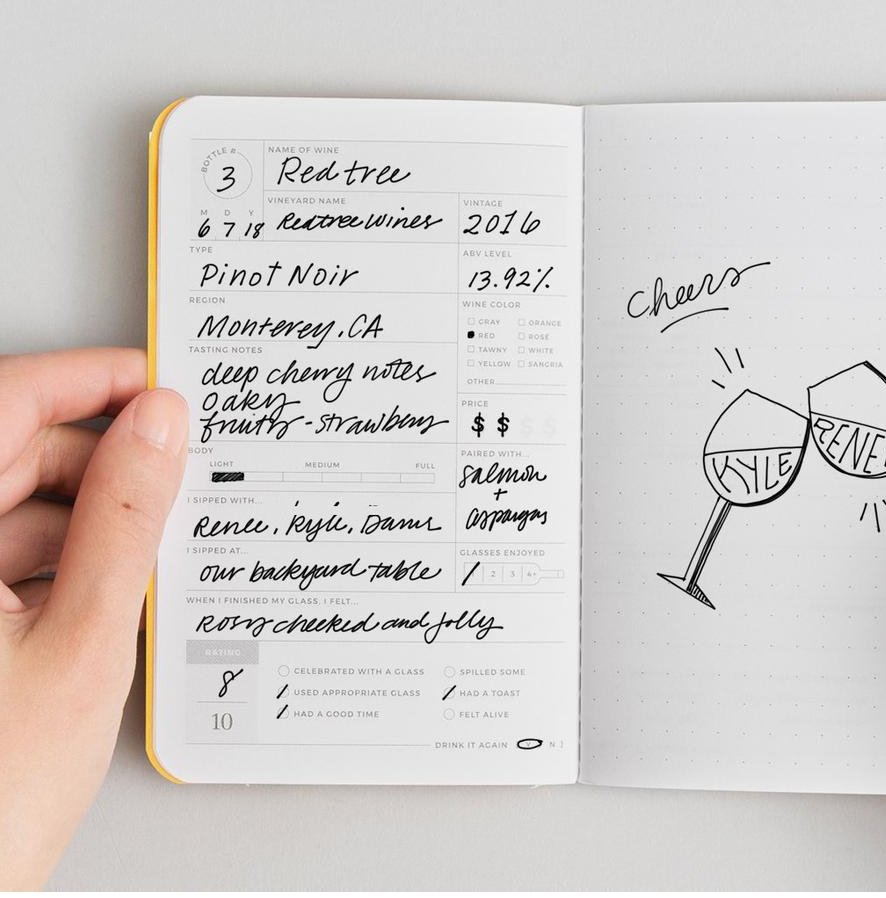 BOTTLE #
3
M D Y
6 7 18
NAME OF WINE
Redtree
VINEYARD NAME
Redtree Wines
VINTAGE
2016
TYPE
Pinot Noir
ABV LEVEL
13.92%
REGION
Monterey, CA
WINE COLOR
GRAY ORANGE
RED ROSÉ
TAWNY WHITE
YELLOW SANGRIA
OTHER
TASTING NOTES
deep cherry notes
oaky
fruity - strawberry
PRICE
$ $ $ $
BODY
LIGHT MEDIUM FULL
PAIRED WITH...
salmon
+
asparagus
I SIPPED WITH...
Renee, Kyle,
I SIPPED AT...
our backyard table
GLASSES ENJOYED
2 3 4+
WHEN I FINISHED MY GLASS, I FELT...
Rosy cheeked and jolly
RATING
8
10
CELEBRATED WITH A GLASS SPILLED SOME
USED APPROPRIATE GLASS HAD A TOAST
HAD A GOOD TIME FELT ALIVE
DRINK IT AGAIN Y N ]
cheers
KYLE
RENE